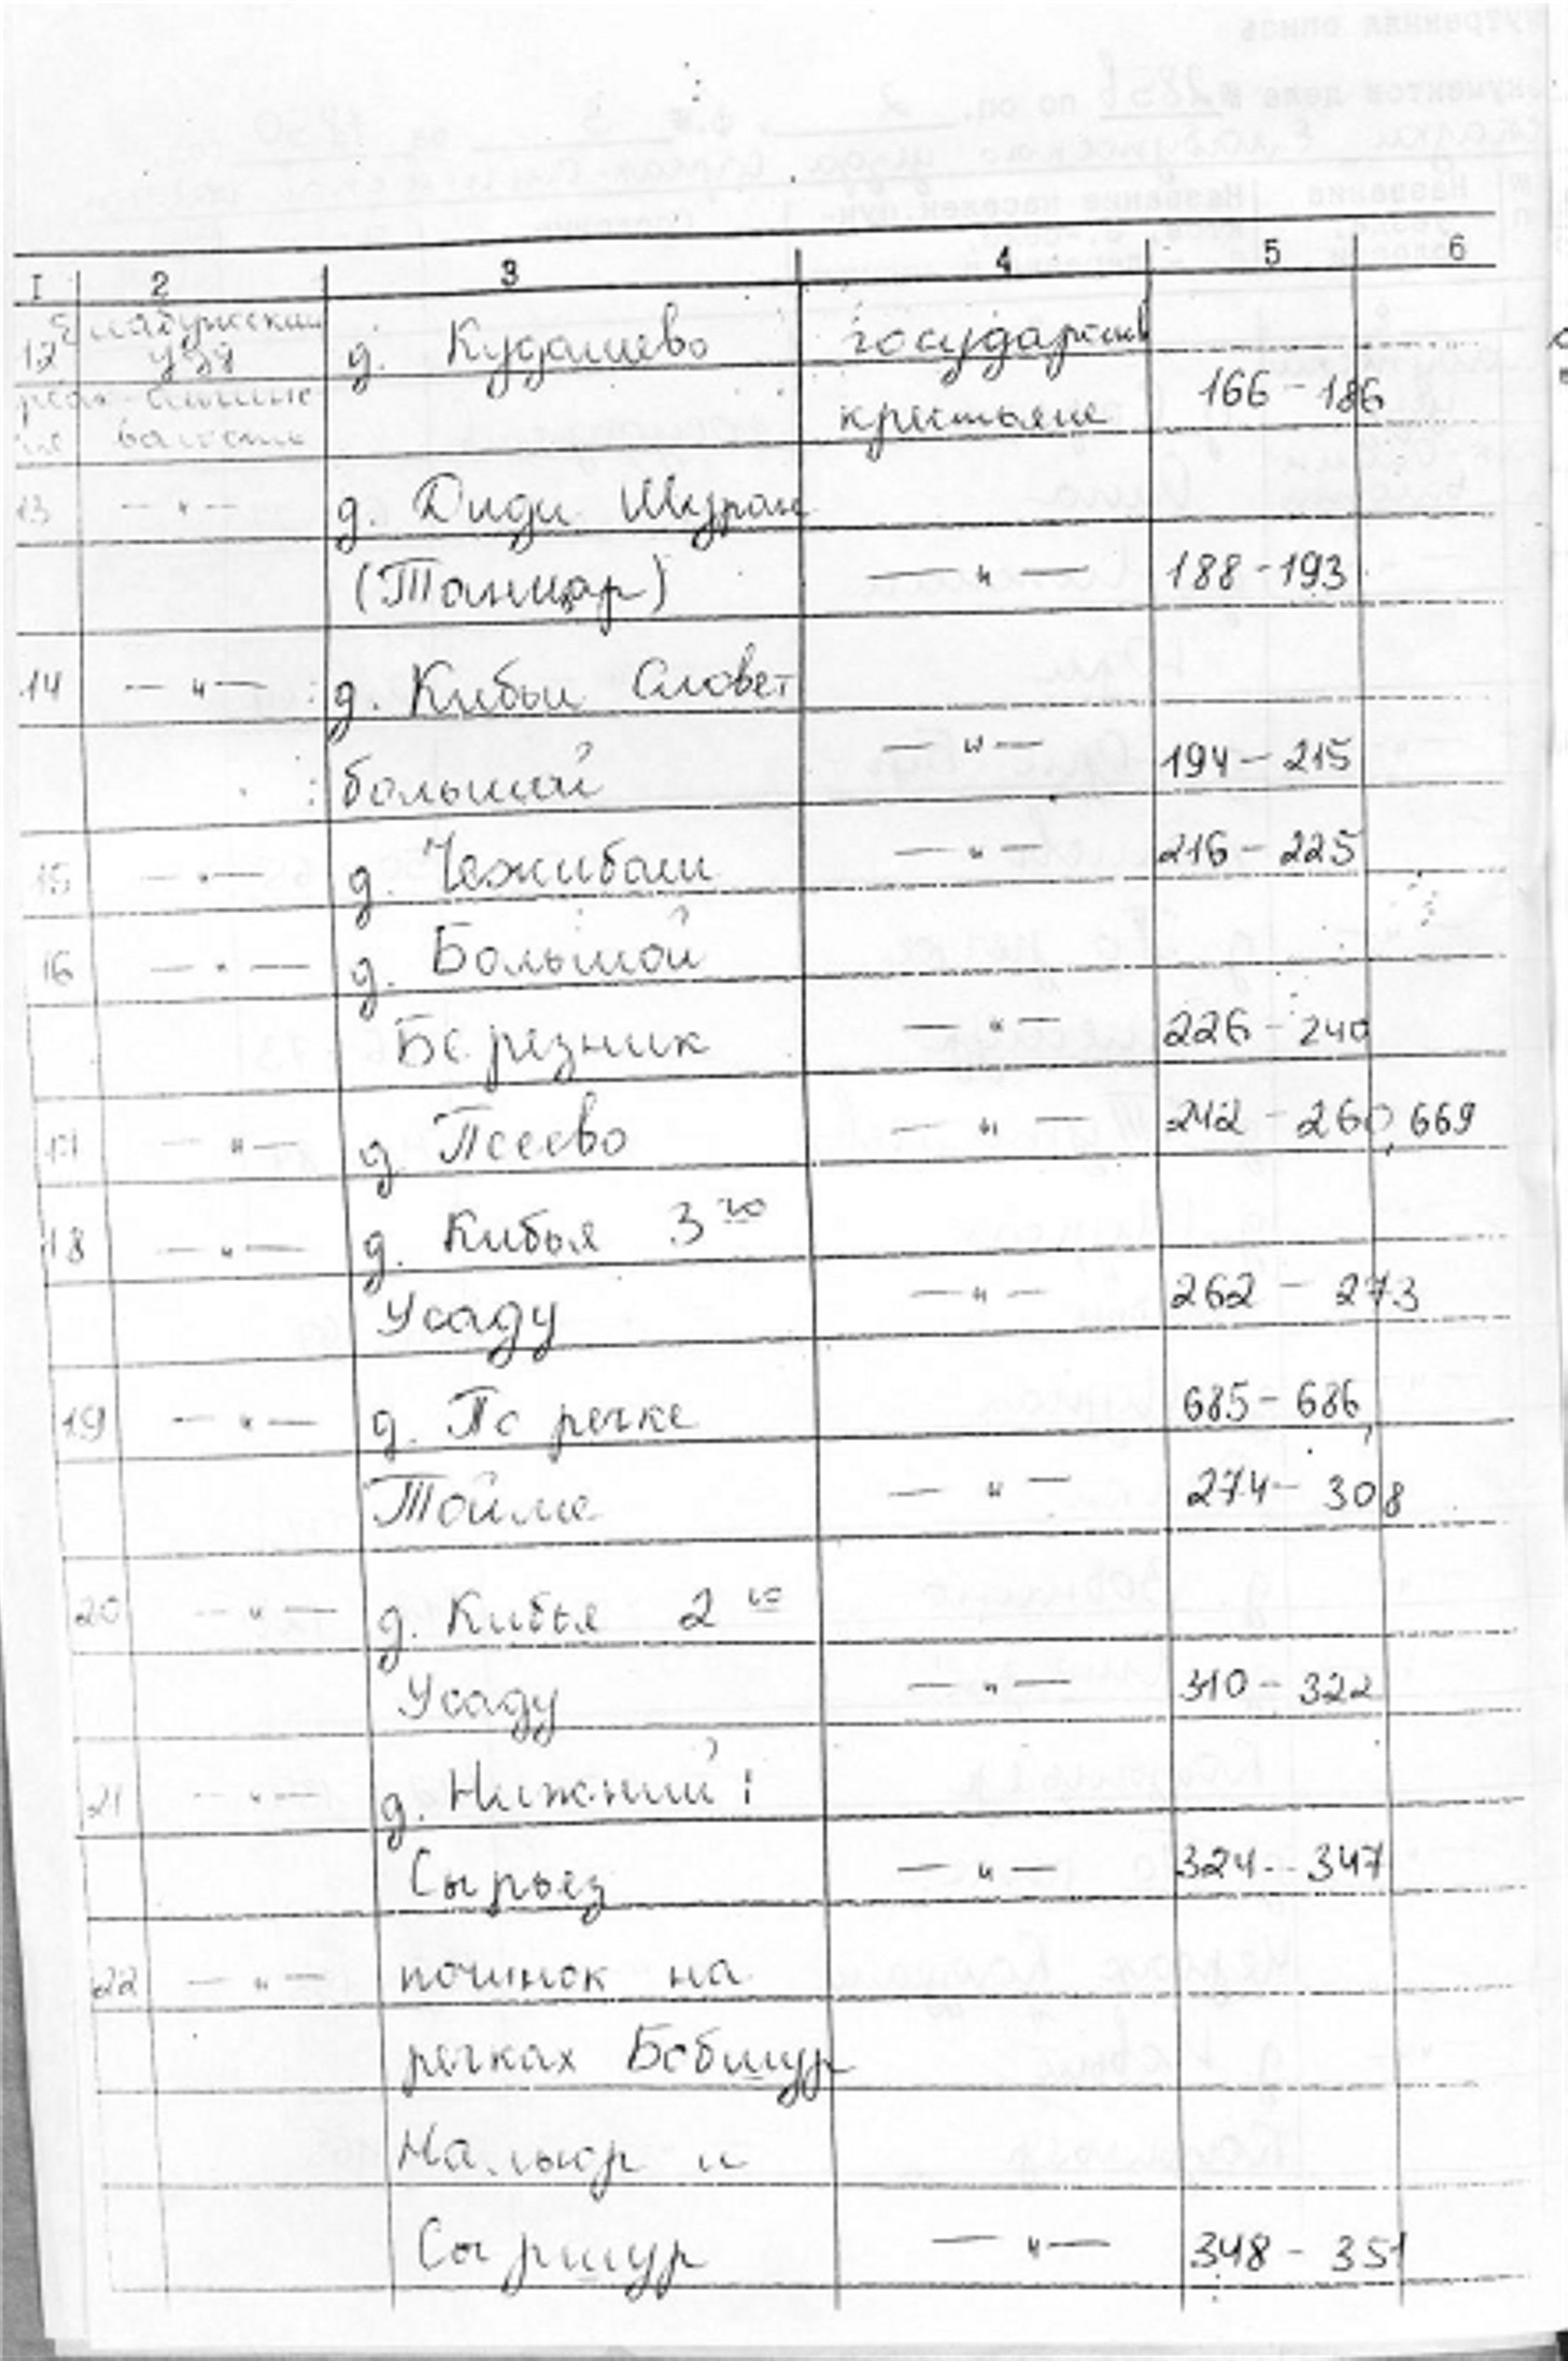 I 2 3 4 5 6
12 Елабужский д. Кудашево государств
уезд
крестьяне 166-186
волость
13 —"— д. Диди Шуран
(Танцар) —"— 188-193
14 —"— д. Кибьи Словет
большой —"— 194-215
15 —"— д. Чежибаш —"— 216-225
16 —"— д. Большой
Березник —"— 226-240
17 —"— д. Псеево —"— 242-260, 669
18 —"— д. Кибья 3го
Усаду —"— 262-273
19 —"— д. По речке 685-686,
Тойме —"— 274-308
20 —"— д. Кибья 2го
Усаду —"— 310-322
21 —"— д. Нижний
Сырьез —"— 324-347
22 —"— починок на
речках Бобшур
и
Сыршур —"— 348-351